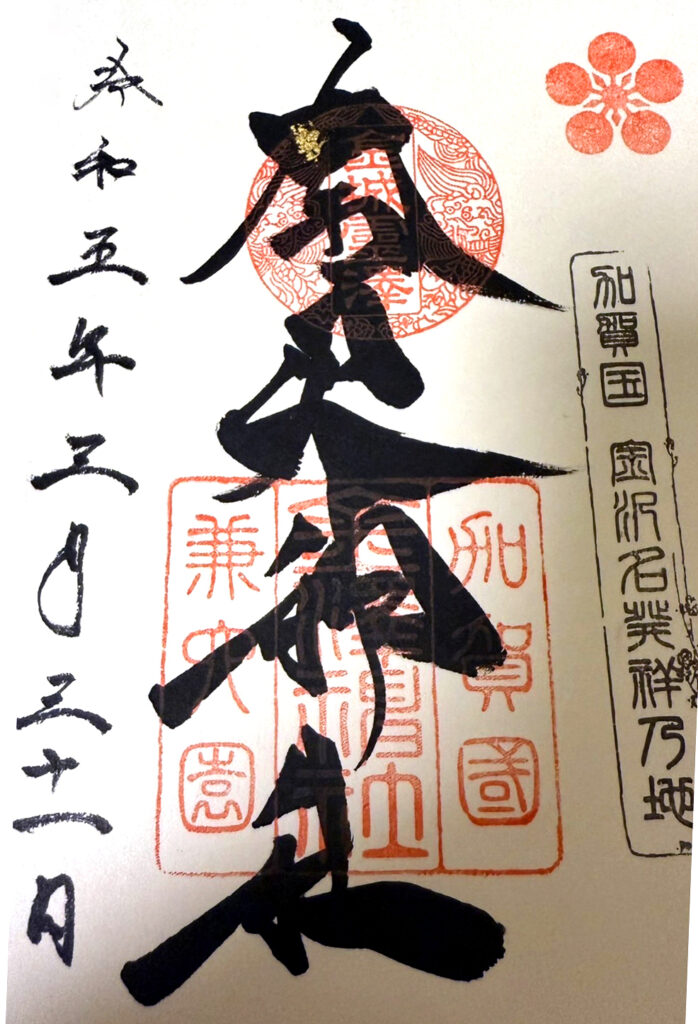 加賀国 金沢名発祥乃地
金城靈澤
金澤神社
加賀國
金澤神社
兼六園
令和五年三月三十一日